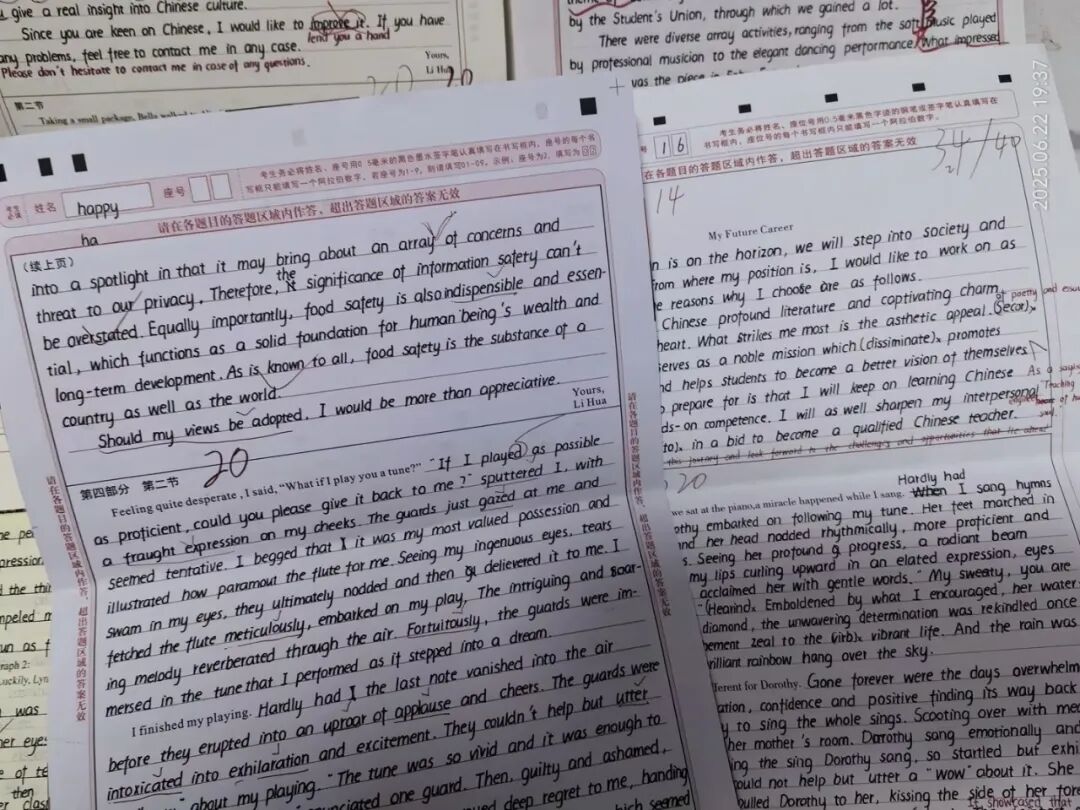 u give a real insight into Chinese culture.
Since you are keen on Chinese, I would like to improve it. If you have
lend you a hand
any problems, feel free to contact me in any case.
Please don't hesitate to contact me in case of any questions.
Yours,
Li Hua
20
第二节
Taking a small package, Bella walked
by the Student's Union, through which we gained a lot.
There were diverse array activities, ranging from the soft music played
by professional musician to the elegant dancing performance. What impressed
was the piece
2025.06.22 19:37
考生必填
姓名
happy
座号
考生务必将姓名、座号用0.5毫米的黑色墨水签字笔认真填写在书写框内，座号的每个书
写框只能填写一个阿拉伯数字。若座号为1-9，则请填写01-09。示例，座号为2，填写为02
请在各题目的答题区域内作答，超出答题区域的答案无效
ha
（续上页）
into a spotlight in that it may bring about an array of concerns and
threat to our privacy. Therefore, the significance of information safety can't
be overstated. Equally importantly, food safety is also indispensible and essen-
tial, which functions as a solid foundation for human being's wealth and
long-term development. As is known to all, food safety is the substance of a
country as well as the world.
Should my views be adopted, I would be more than appreciative.
Yours,
Li Hua
20
第四部分 第二节
Feeling quite desperate, I said, "What if I play you a tune?" "If I played as possible
as proficient, could you please give it back to me?" sputtered I, with
a fraught expression on my cheeks. The guards just gazed at me and
seemed tentative. I begged that it was my most valued possession and
illustrated how paramount the flute for me. Seeing my ingenuous eyes, tears
swam in my eyes, they ultimately nodded and then delievered it to me. I
fetched the flute meticulously, embarked on my play. The intriguing and soar-
ing melody reverberated through the air. Fortuitously, the guards were im-
mersed in the tune that I performed as if stepped into a dream.
I finished my playing. Hardly had the last note vanished into the air
before they erupted into an uproar of applause and cheers. The guards were
intoxicated into exhilaration and excitement. They couldn't help but utter
about my playing. "The tune was so vivid and it was enough to
one guard. Then, guilty and ashamed,
deep regret to me, handing
which seemed
请在各题目的答题区域内作答，超出答题区域的答案无效
请在各题目的答题区域内作答，超出答题区域的答案无效
考生务必将姓名、座位号用0.5毫米黑色字迹的钢笔或签字笔认真填写在
书写框内，座位号的每个书写框内只能填写一个阿拉伯数字。
号
16
在各题目的答题区域内作答，超出答题区域的答案无效
34/40
14
My Future Career
n is on the horizon, we will step into society and
from where my position is, I would like to work on as
e reasons why I choose are as follows.
Chinese profound literature and captivating charm
of poetry and
heart. What strikes me most is the asthetic appeal.
erves as a noble mission which (dissiminate), promotes
nd helps students to become a better vision of themselves
prepare for is that I will keep on learning Chinese
ds-on competence. I will as well sharpen my interpersonal
Teaching
to), in a bid to become a qualified Chinese teacher.
this journey and look forward to the challenges and opportunities that lie ahead
20
we sat at the piano, a miracle happened while I sang.
Hardly had
When I sang hymns
othy embarked on following my tune. Her feet marched in
and her head nodded rhythmically, more proficient and
s. Seeing her profound progress, a radiant beam
my lips curling upward in an elated expression, eyes
acclaimed her with gentle words. "My sweaty, you are
Emboldened by what I encouraged, her water
diamond, the unwavering determination was rekindled once
ement zeal to the vibrant life. And the rain was
rilliant rainbow hang over the sky.
ferent for Dorothy. Gone forever were the days overwhelm
ation, confidence and positive finding its way back
y to sing the whole sings. Scooting over with me
her mother's room. Dorothy sang emotionally and
ing the sing Dorothy sang, so startled but exhi
ould not help but utter a "wow" about it. She
pulled Dorothy to her, kissing the side of her fore
It showcased that
raph 2:
Luckily, Lyn
was
her eyes
e of te
then